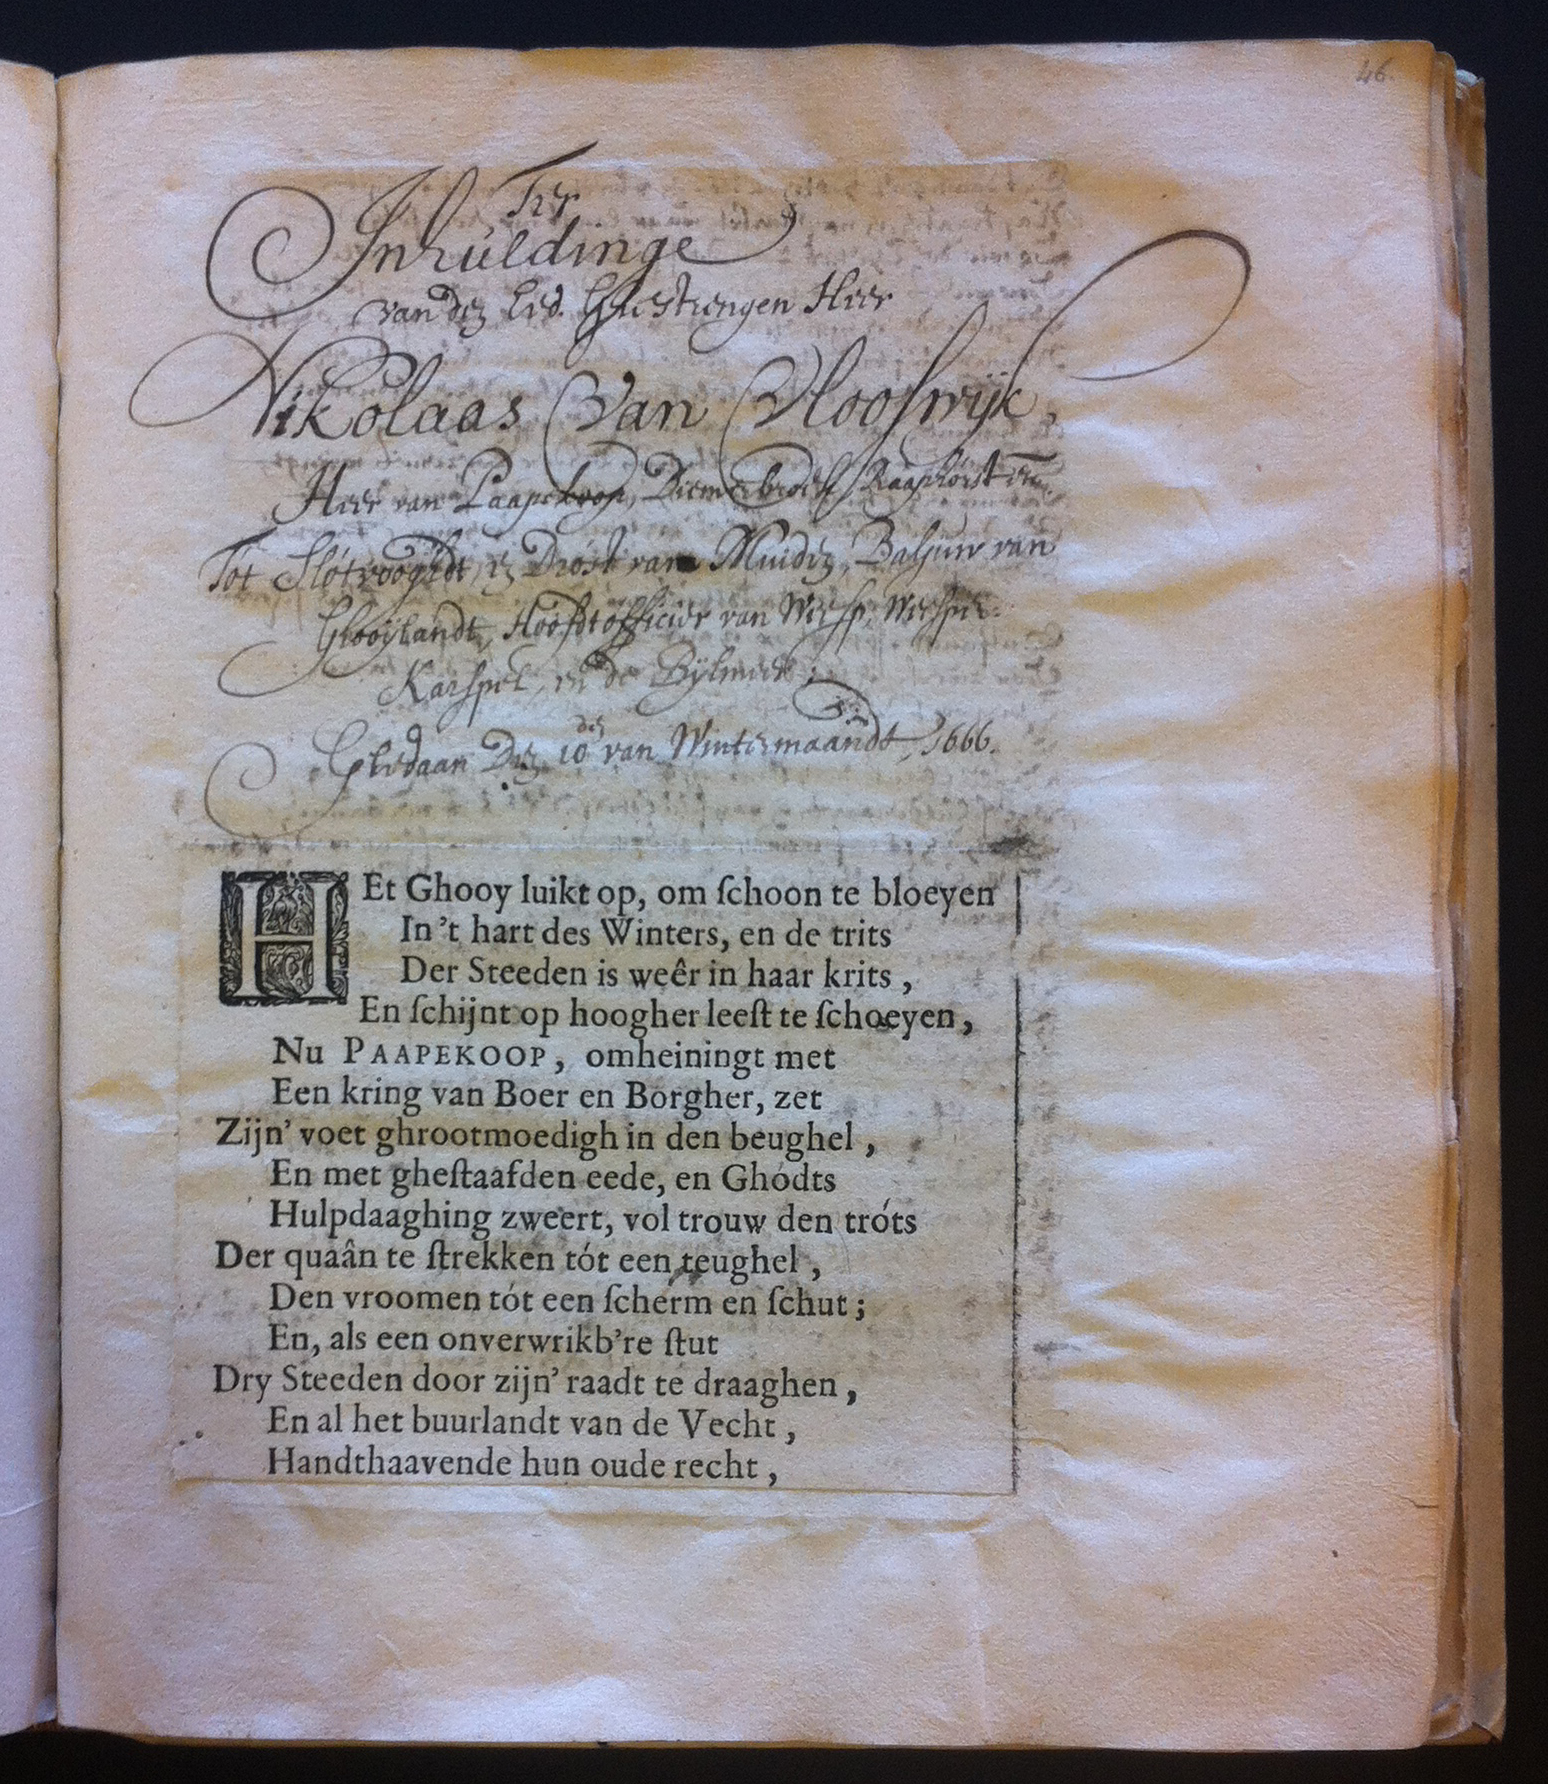 46.
Ter
Inhuldinge
van den Ed. Ghestrengen Heer
Nikolaas van Vloofwyk,
Heer van Paapekoop, Diemerbroek, Raaphorst en.
Tót Slótvooghdt, en Dróst van Muiden, Baljuw van
Ghooylandt, Hoofdtofficier van Weesp, Weesper-
Karspel, en de Bylmeer;
Ghedaan den 10den van Wintermaandt, 1666.
HEt Ghooy luikt op, om ſchoon te bloeyen
In 't hart des Winters, en de trits
Der Steeden is weêr in haar krits,
En ſchijnt op hoogher leeſt te ſchoeyen,
Nu PAAPEKOOP, omheiningt met
Een kring van Boer en Borgher, zet
Zijn' voet ghrootmoedigh in den beughel,
En met gheſtaafden eede, en Ghódts
Hulpdaaghing zweert, vol trouw den tróts
Der quaân te ſtrekken tót een teughel,
Den vroomen tót een ſcherm en ſchut;
En, als een onverwrikb're ſtut
Dry Steeden door zijn' raadt te draaghen,
En al het buurlandt van de Vecht,
Handthaavende hun oude recht,